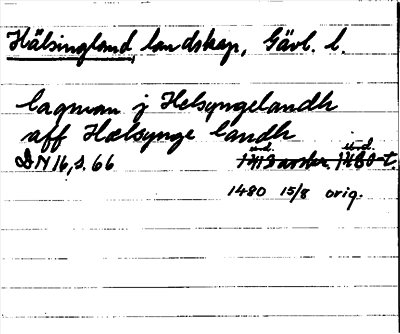 Hälsingland, landskap, Gävl. l.
lagman j Helsyngelandh
aff Hælsynge landh
DN 16, s. 66
1480 15/8 orig.